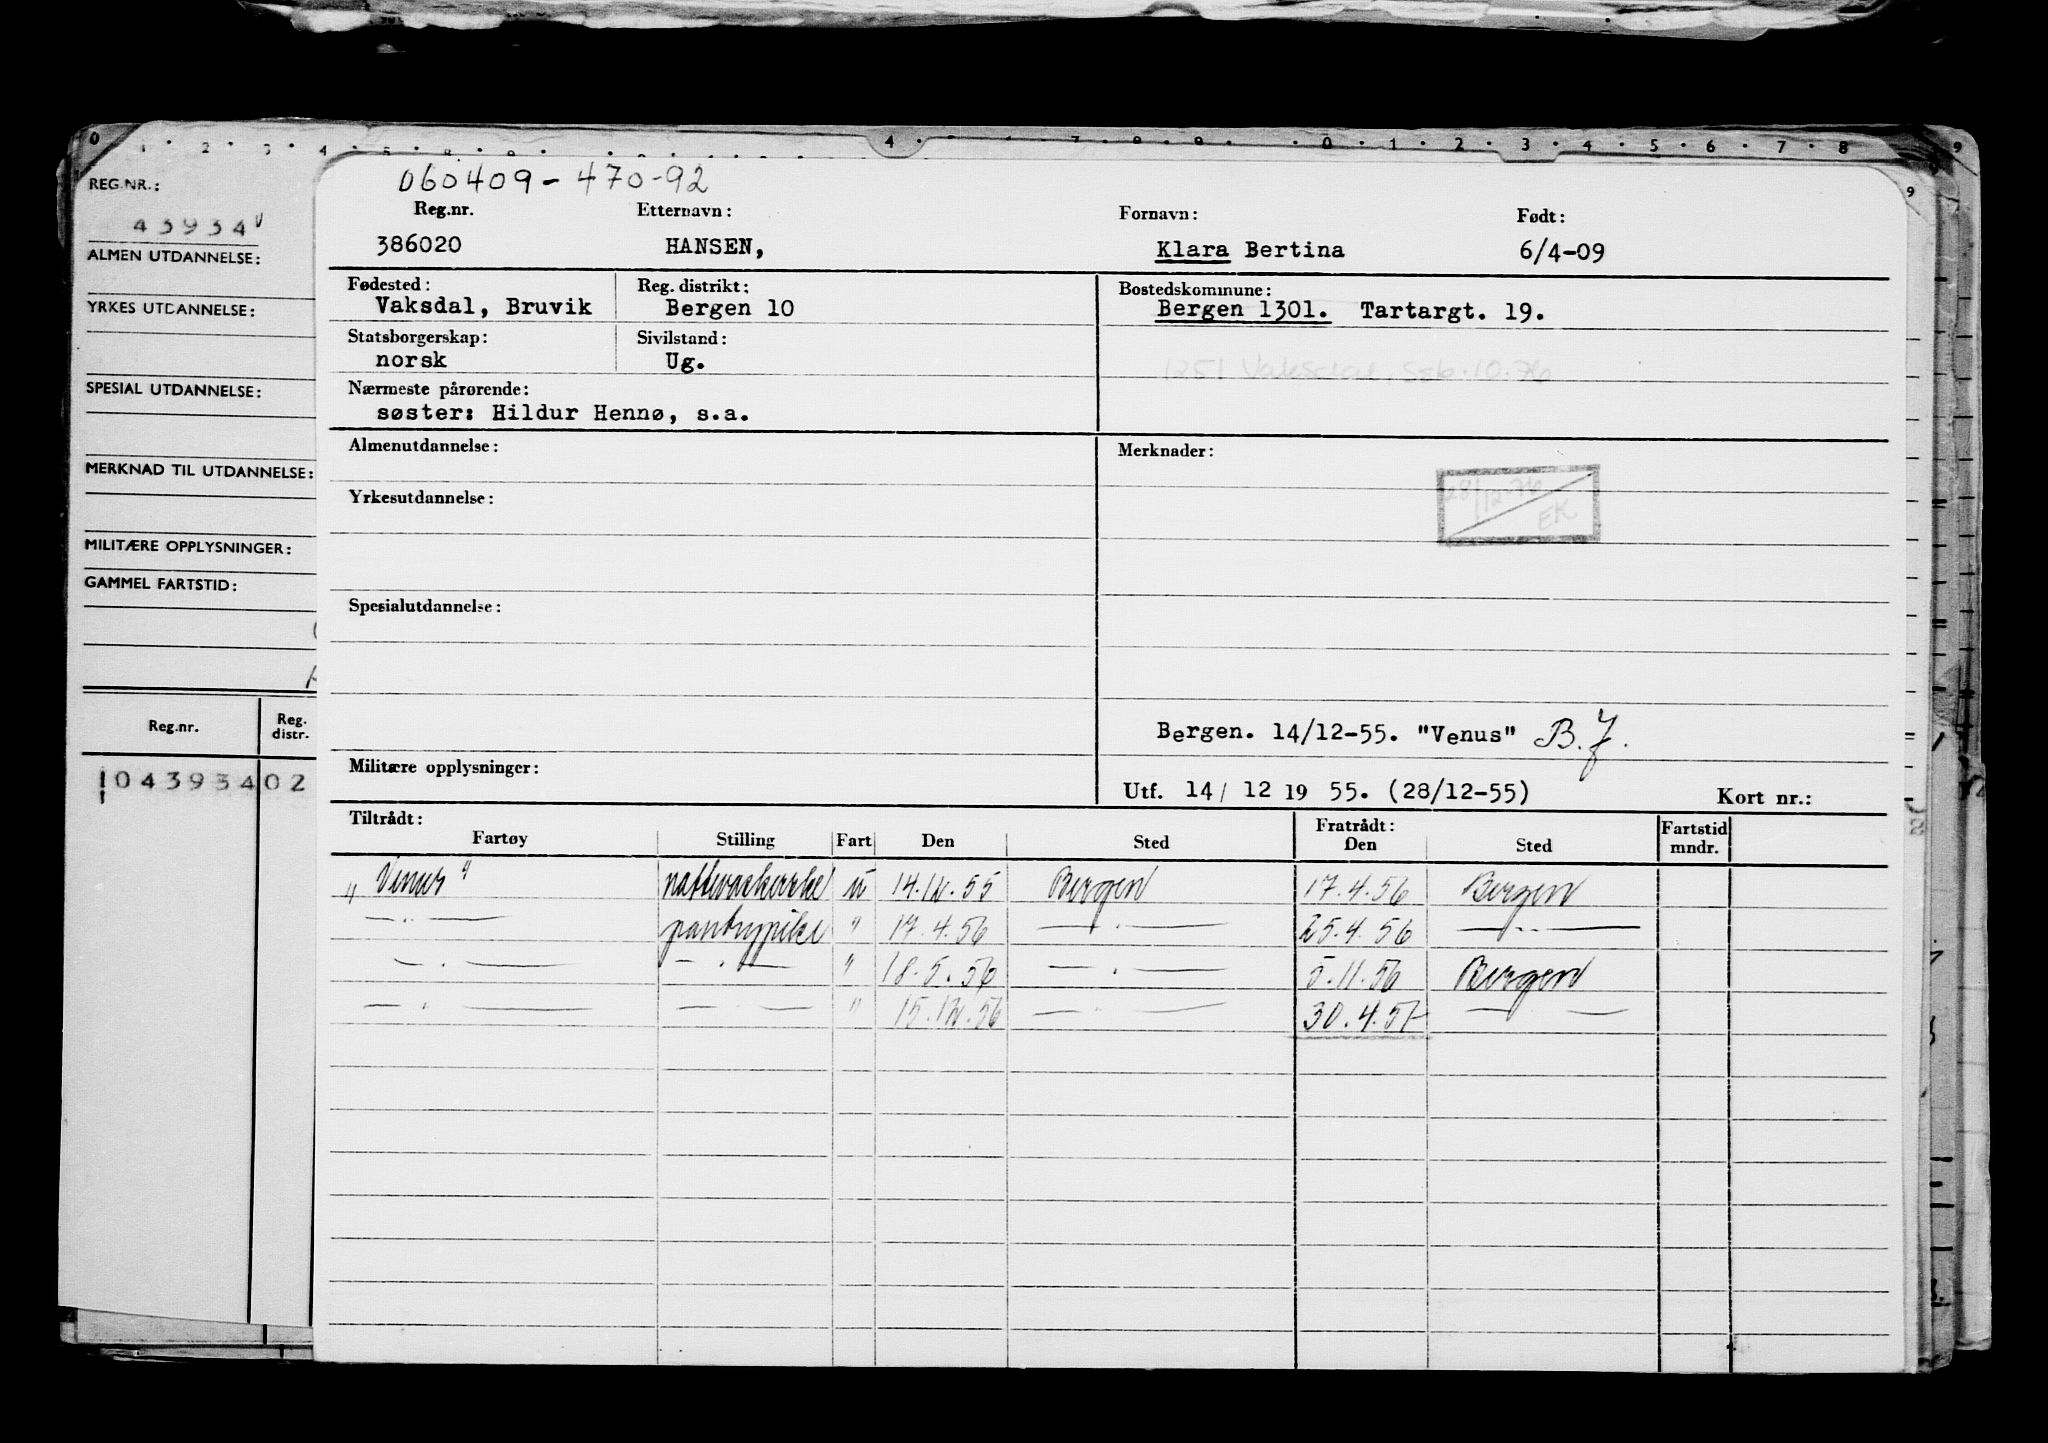 REG.NR.:
43934
ALMEN UTDANNELSE:
YRKES UTDANNELSE:
SPESIAL UTDANNELSE:
MERKNAD TIL UTDANNELSE:
MILITÆRE OPPLYSNINGER:
GAMMEL FARTSTID:
Reg.nr. Reg. distr.
104393402
060409-470-92
Reg.nr. Etternavn: Fornavn: Født:
386020 HANSEN, Klara Bertina 6/4-09
Fødested: Reg. distrikt: Bostedskommune:
Vaksdal, Bruvik Bergen 10 Bergen 1301. Tartargt. 19.
Statsborgerskap: Sivilstand:
norsk Ug.
1251 Vaksdal, Seb.10.76
Nærmeste pårørende:
søster: Hildur Hennø, s.a.
Almenutdannelse: Merknader:
28/12-76 EK
Yrkesutdannelse:
Spesialutdannelse:
Bergen. 14/12-55. "Venus" B.J.
Militære opplysninger:
Utf. 14/ 12 19 55. (28/12-55) Kort nr.:
Tiltrådt: Fratrådt: Fartstid
Fartøy Stilling Fart Den Sted Den Sted mndr.
"Venus" nattevaskerske u 14.12.55 Bergen 17.4.56 Bergen
— " — pantrypike " 17.4.56 — " — 25.4.56 — " —
— " — — " — " 18.5.56 — " — 5.11.56 Bergen
— " — — " — " 15.12.56 — " — 30.4.57 — " —